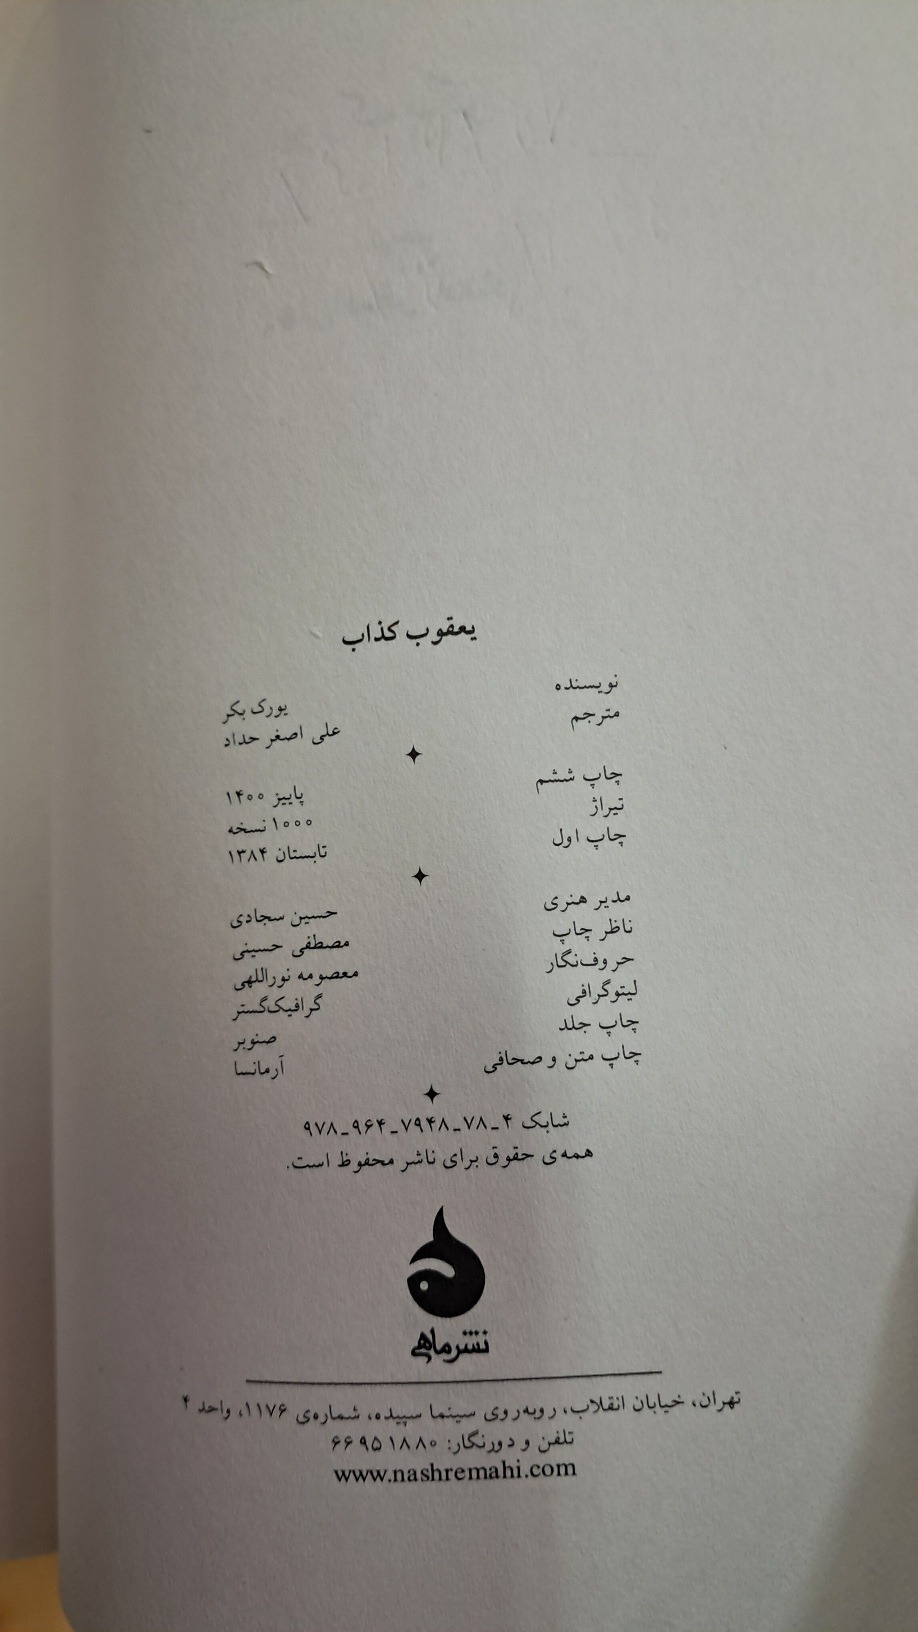 یعقوب کذاب
نویسنده یورک بکر
مترجم علی اصغر حداد
چاپ ششم پاییز ۱۴۰۰
تیراژ ۱۰۰۰ نسخه
چاپ اول تابستان ۱۳۸۴
مدیر هنری حسین سجادی
ناظر چاپ مصطفی حسینی
حروف‌نگار معصومه نوراللهی
لیتوگرافی گرافیک‌گستر
چاپ جلد صنوبر
چاپ متن و صحافی آرمانسا
شابک ۴_۷۸_۷۹۴۸_۹۶۴_۹۷۸
همه‌ی حقوق برای ناشر محفوظ است.
نشرماهی
تهران، خیابان انقلاب، روبه‌روی سینما سپیده، شماره‌ی ۱۱۷۶، واحد ۴
تلفن و دورنگار: ۶۶۹۵۱۸۸۰
www.nashremahi.com